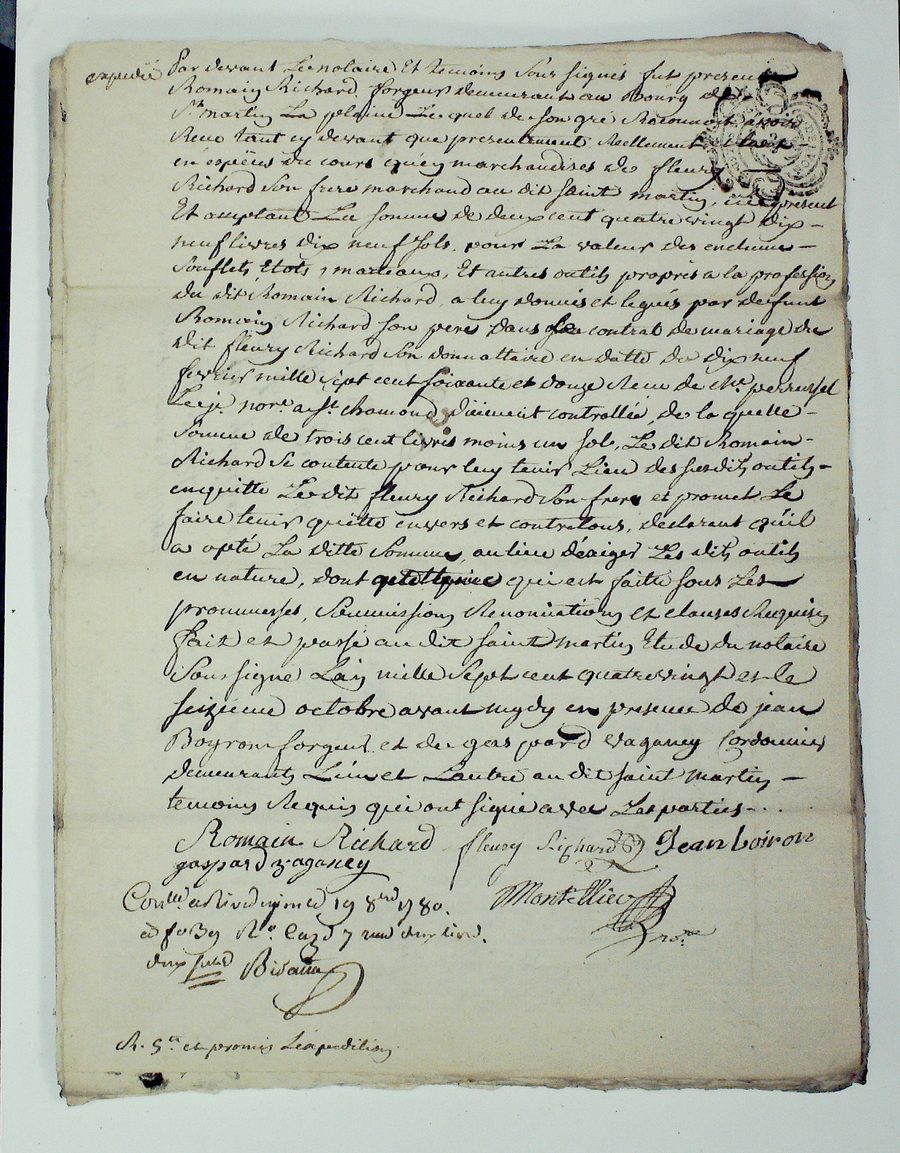 expedié
Par devant Le notaire Et temoins Sous signés fut present
Romain Richard forgeur demeurant au Bourg de
St martin La plaine Lequel de son gré Reconnoit avoir
Receu tant cy devant que presentement Reellement
en espèces du cours qu'en marchandises de fleury
Richard Son frere marchand au dit Saint martin, icy present
Et acceptant La somme de deux cent quatre vingt dix-
neuf livres dix neuf sols, pour La valeur des enclume-
Soufflets, Etots, marteaux, Et autres outils propres a la profession
du dit Romain Richard, a luy donnés et legués par defunt
Romain Richard son pere dans le contrat de mariage du
dit fleury Richard Son donnattaire en datte du dix neuf
fevrier mille sept cent soixante et douze Receu de Me perrussel
Le je. nore. a St chamond, düement controllé, de la quelle-
Somme de trois cent livres moins un sol, Le dit Romain-
Richard Se contente pour luy tenir Lieu des susdits outils-
en quitte Le dit fleury Richard Son frere et promet Le
faire tenir quitte envers et contre tous, declarant qu'il
a opté La ditte Somme, au lieu d'exiger Les dits outils
en nature, dont quittance qui est faitte sous Les
prommesses, Soumissions Renonciations et clauses Requises
fait et passé au dit saint martin Etude du notaire
Soussigné L'an mille Sept cent quatrevingt et le
seizieme octobre avant mydy en presence de jean
Boyron forgeur et de gaspard zaganey Cordonnier
demeurants L'un et L'autre au dit Saint Martin-
temoins Requis qui ont signé avec Les parties...
Romain Richard fleury Richard Jean boiron
gaspard zaganey
Montellier
nore.
Conllé a Rivedegier Le 19 8bre 1780.
fo 39 Ro Case 7
dix sols Bidault
R. 5s et promis L'expedition